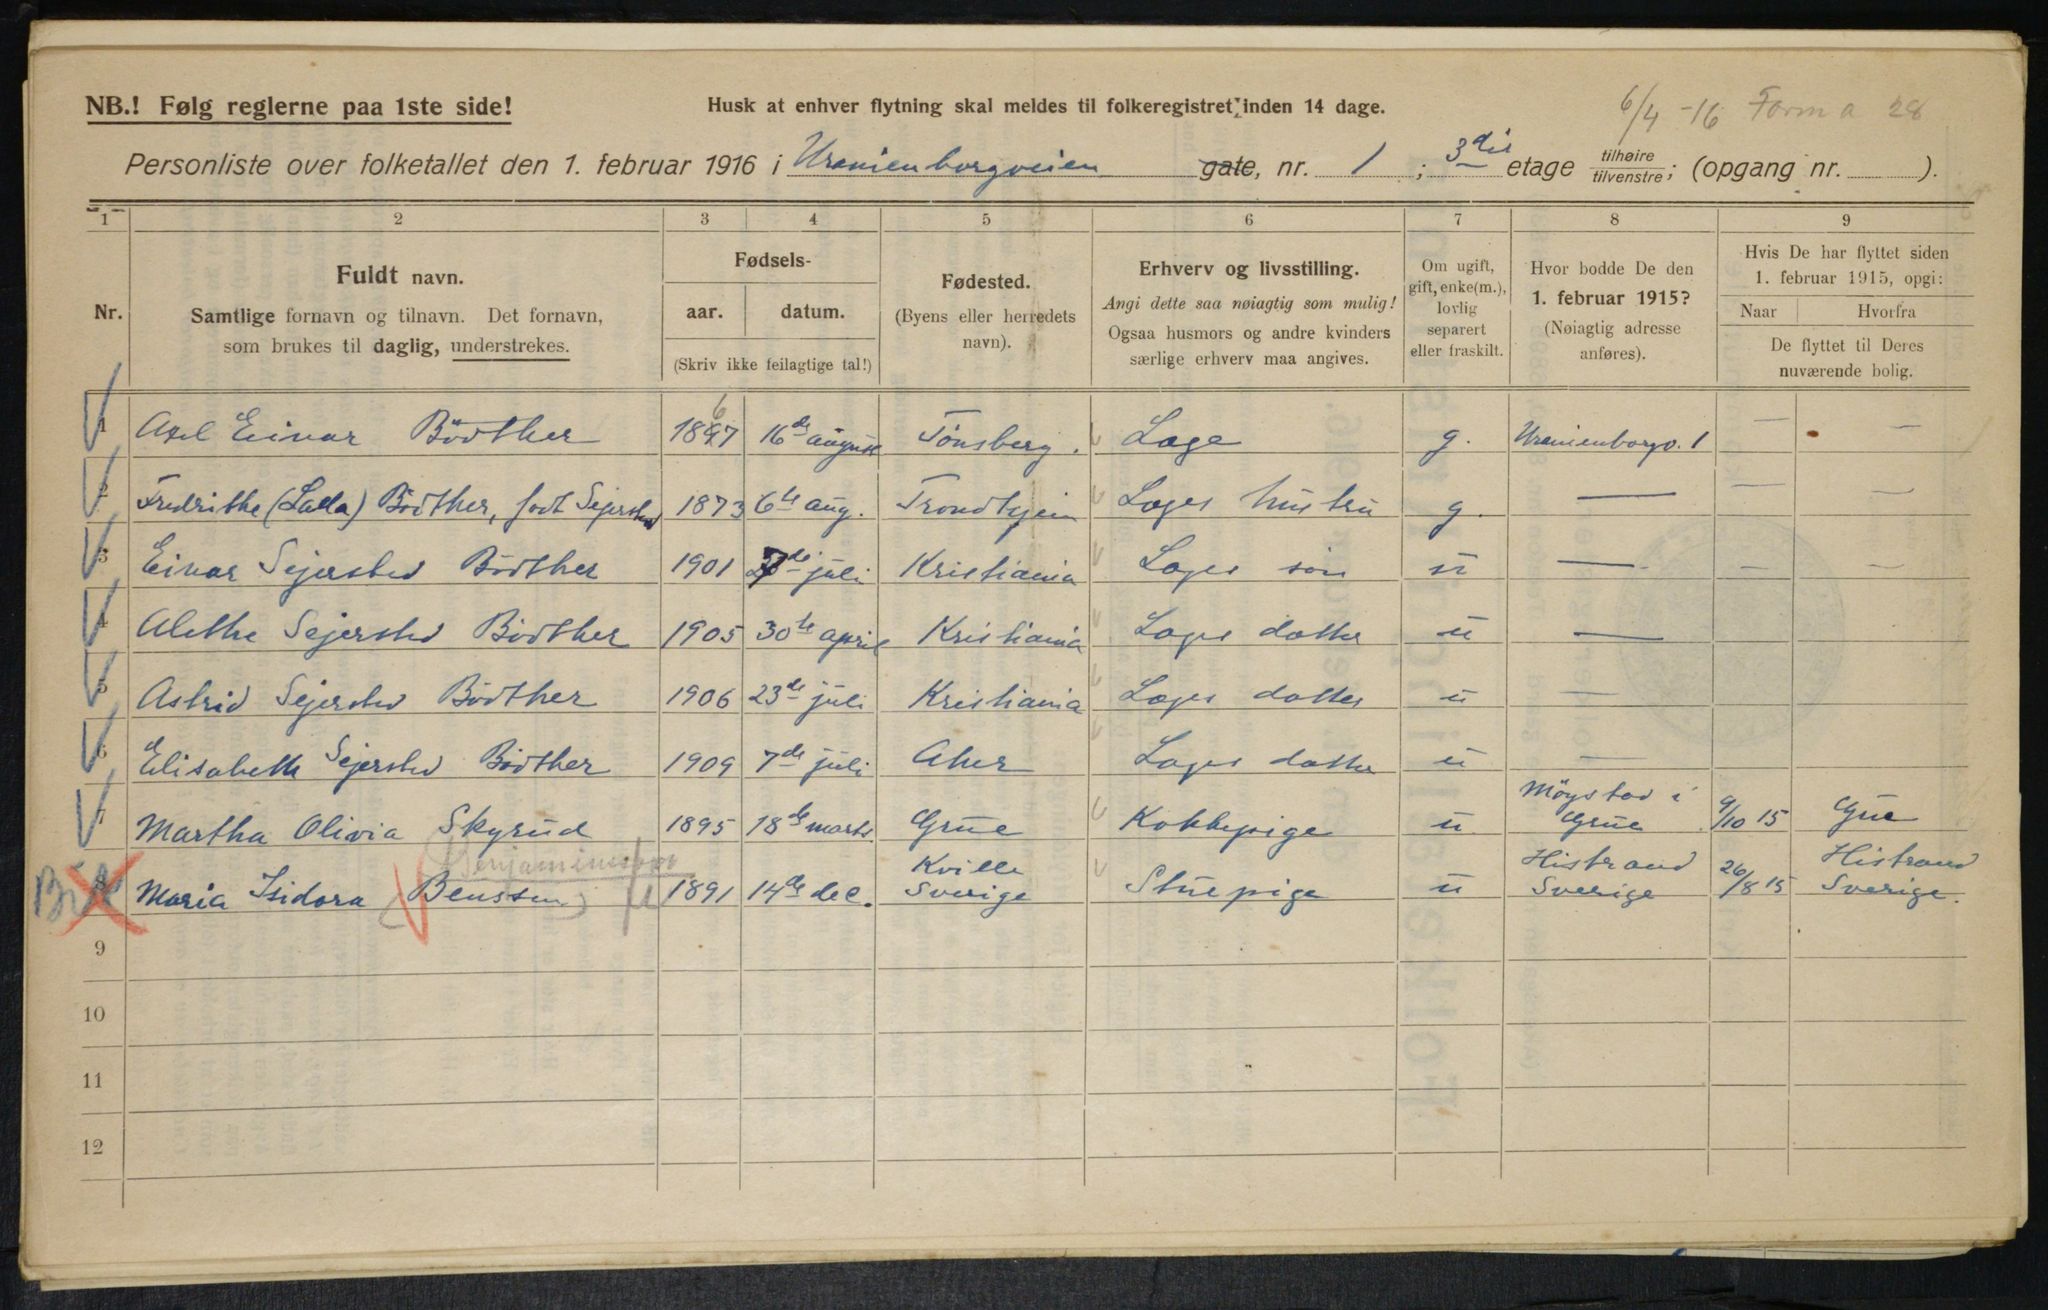 NB.! Følg reglerne paa 1ste side!
Husk at enhver flytning skal meldes til folkeregistret inden 14 dage.
6/4 -16 Form a 28
Personliste over folketallet den 1. februar 1916 i Uranienborgveien gate, nr. 1 ; 3die etage tilhøire tilvenstre; (opgang nr. ).
1 2 3 4 5 6 7 8 9
Nr.
Fuldt navn.
Samtlige fornavn og tilnavn. Det fornavn,
som brukes til daglig, understrekes.
Fødsels-
aar. datum.
(Skriv ikke feilagtige tal!)
Fødested.
(Byens eller herredets
navn).
Erhverv og livsstilling.
Angi dette saa nøiagtig som mulig!
Ogsaa husmors og andre kvinders
særlige erhverv maa angives.
Om ugift,
gift, enke(m.),
lovlig
separert
eller fraskilt.
Hvor bodde De den
1. februar 1915?
(Nøiagtig adresse
anføres).
Hvis De har flyttet siden
1. februar 1915, opgi:
Naar Hvorfra
De flyttet til Deres
nuværende bolig.
1 Axel Einar Bödther 1867 16de august Tönsberg. Læge g. Uranienborgv. 1 — —
2 Fredrikke (Lalla) Bödther, født Sejersted 1873 6te aug. Trondhjem Læges hustru g. — — —
3 Einar Sejersted Bödther 1901 7de juli Kristiania Læges sön u — — —
4 Alethe Sejersted Bödther 1905 30te april Kristiania Læges datter u —
5 Astrid Sejersted Bödther 1906 23de juli Kristiania Læges datter u —
6 Elisabeth Sejersted Bödther 1909 7de juli Aker Læges datter u —
7 Martha Olivia Skyrud 1895 18de marts Grue Kokkepige u Möystad i Grue 9/10 15 Grue
Benjaminsen
8 Maria Isidora (Benssen) 1891 14de dec. Kville Sverige Stuepige u Histrand Sverige 26/8 15 Histrand Sverige.
9
10
11
12